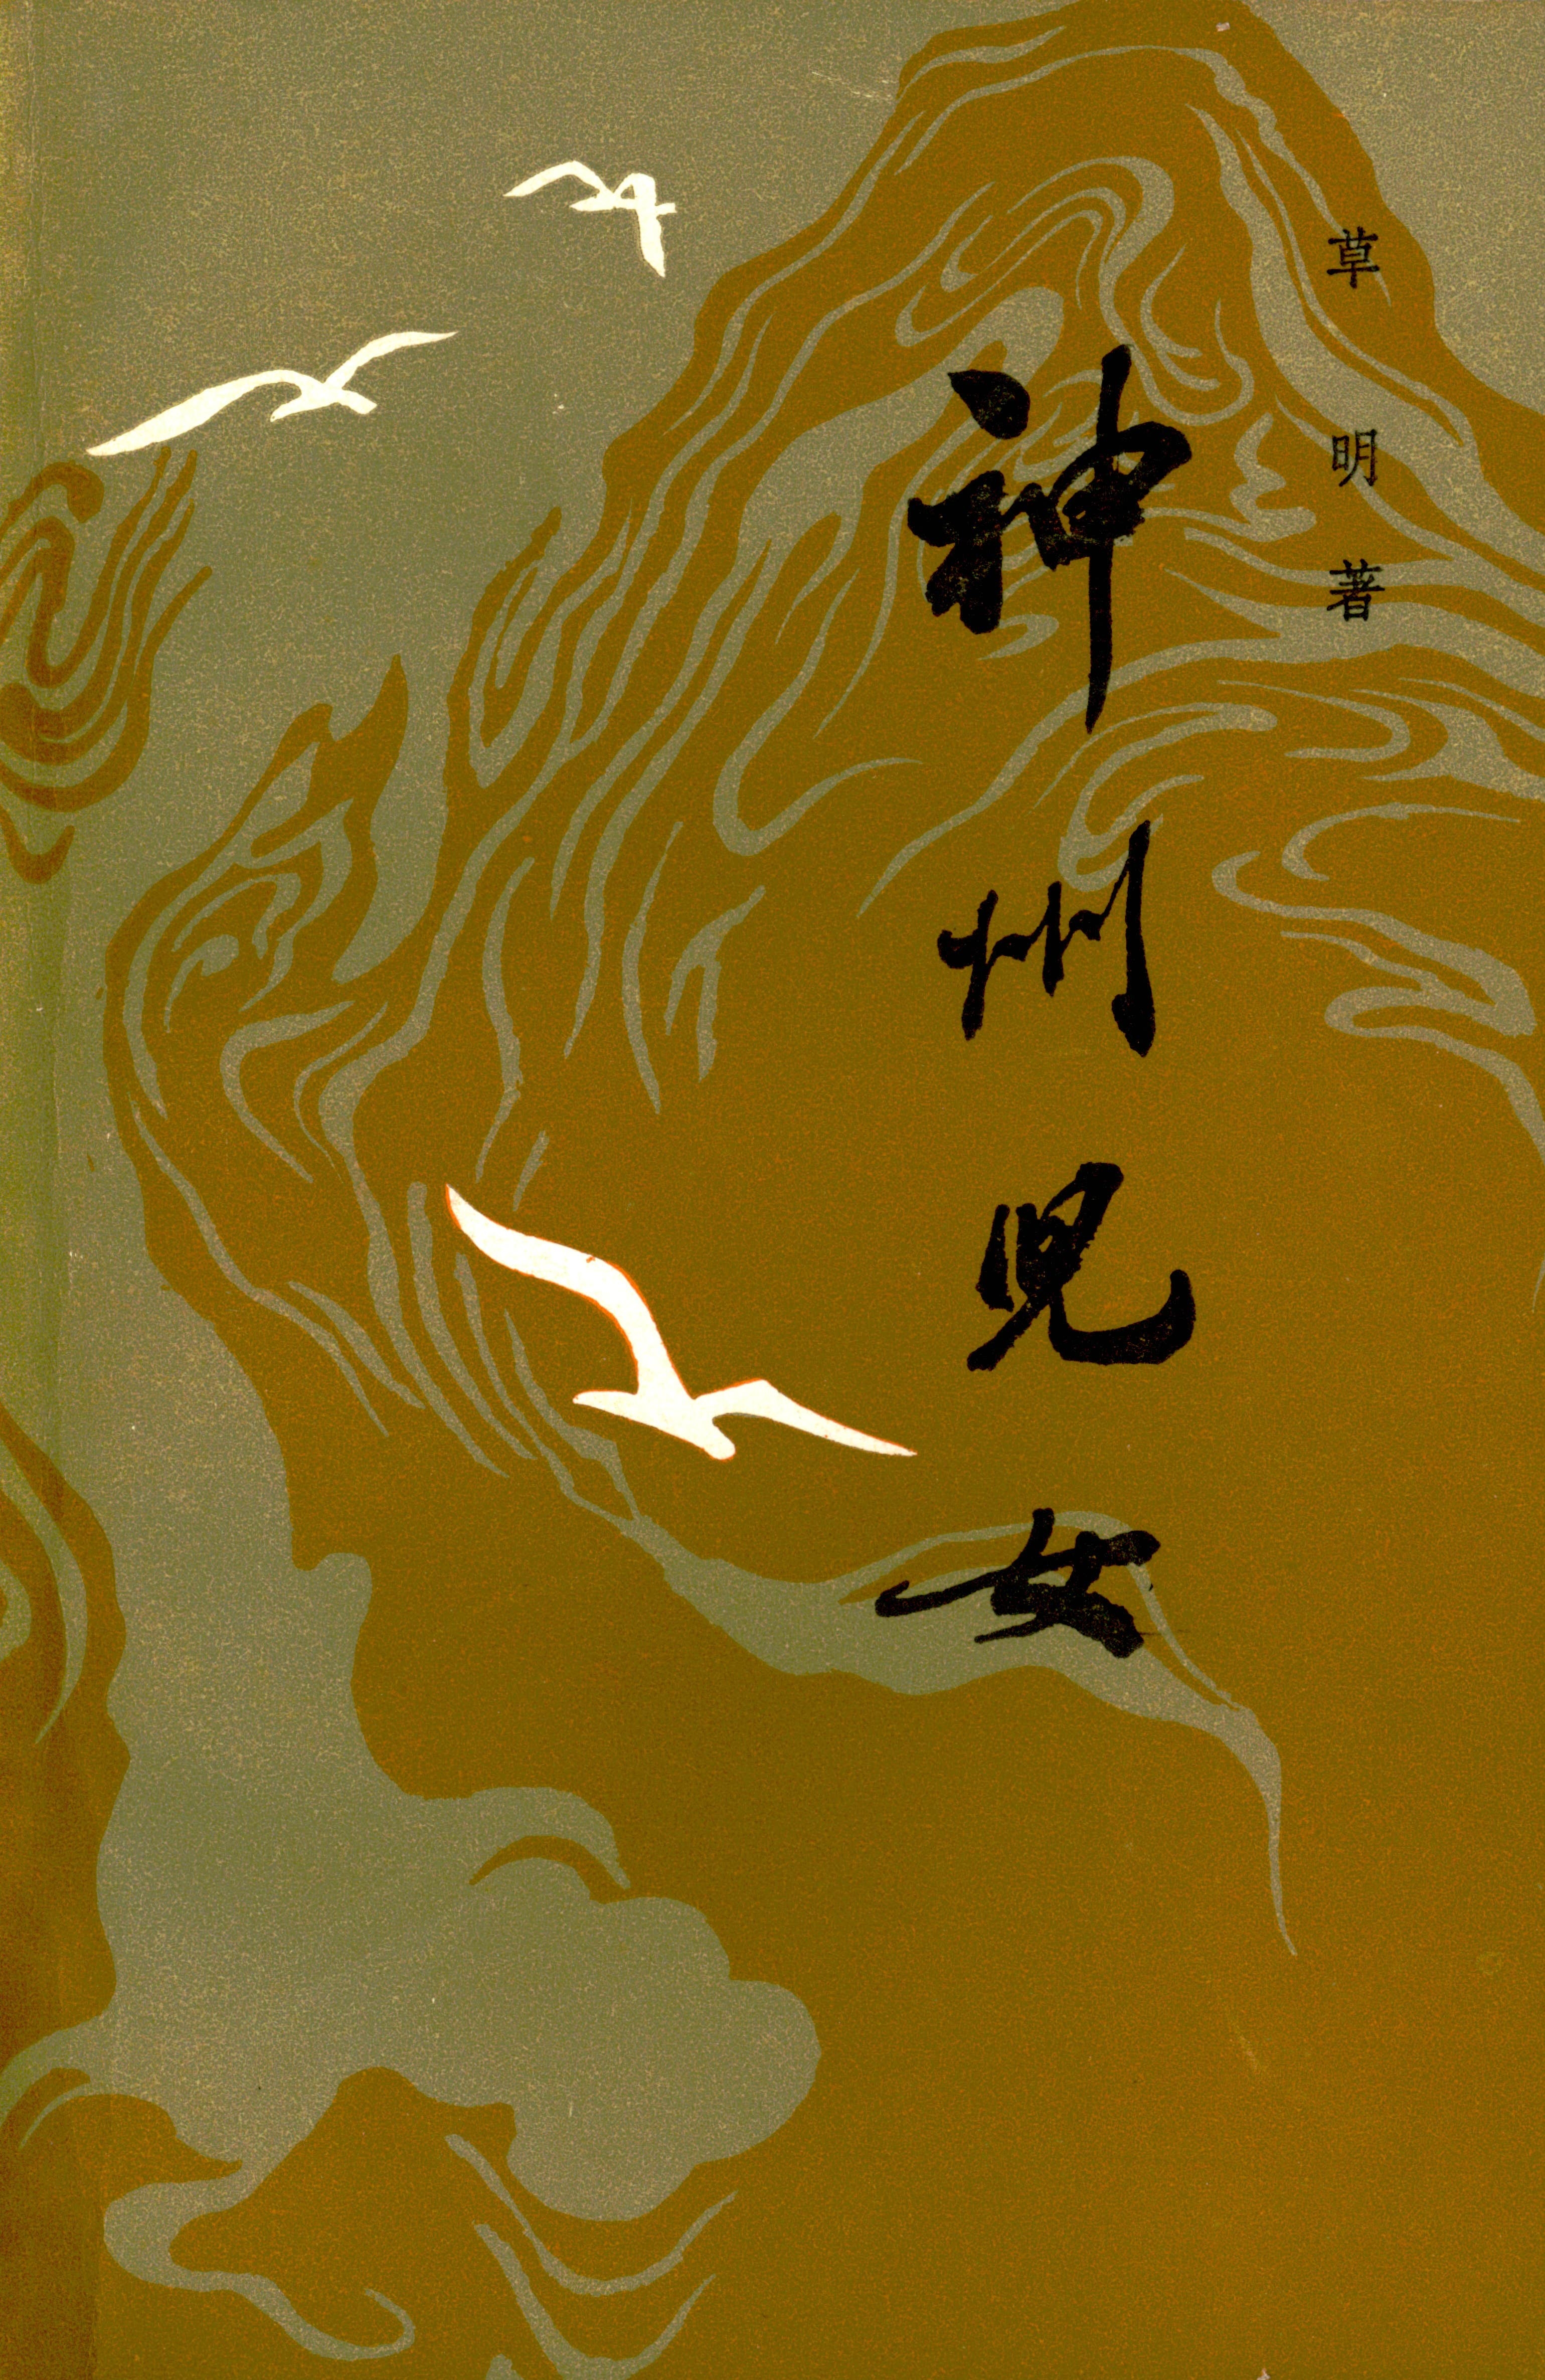 草明著
神州兒女